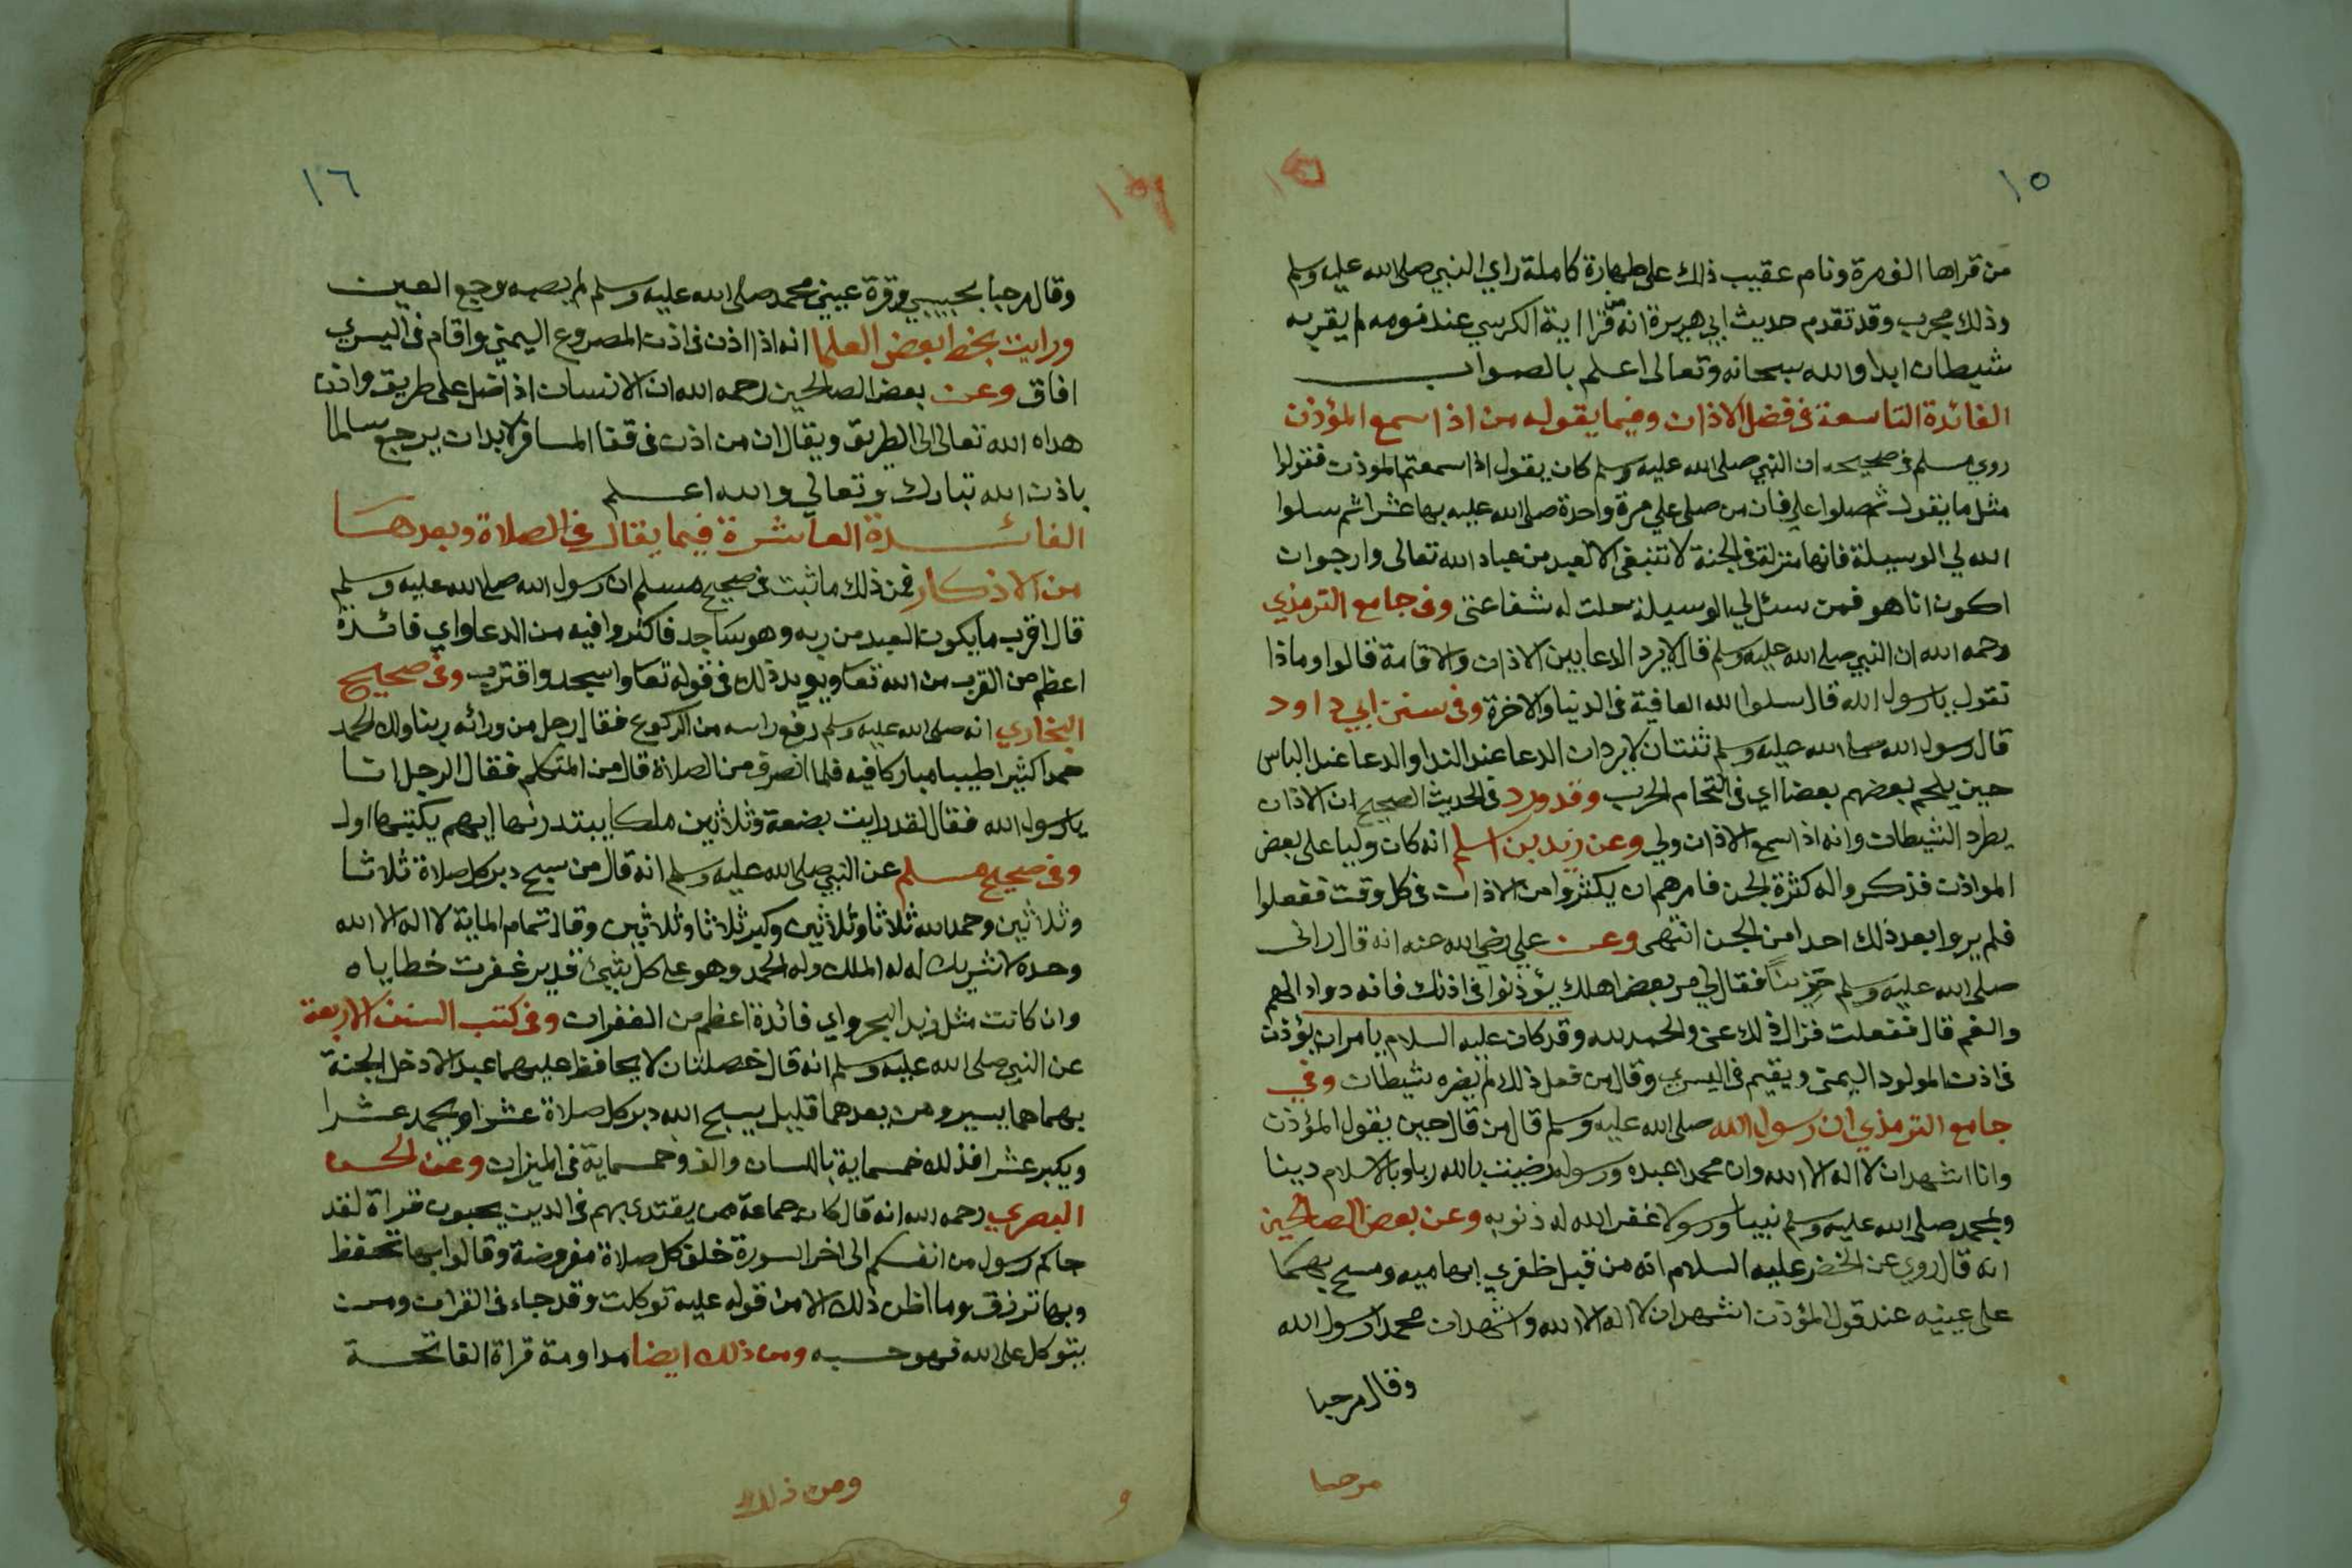 ١٥
من قراها الف مرة ونام عقيب ذلك على طهارة كاملة راي النبي صلى الله عليه وسلم
وذلك مجرب وقد تقدم حديث ابي هريرة انه من قرا اية الكرسي عند نومه لم يقربه
شيطان ابدا والله سبحانه وتعالى اعلم بالصواب
الفائدة التاسعة في فضل الاذان وفيما يقوله من اذا سمع المؤذن
روي مسلم في صحيحه ان النبي صلى الله عليه وسلم كان يقول اذا سمعتم الموذن فقولوا
مثل ما يقول ثم صلوا علي فان من صلى علي مرة واحدة صلى الله عليه بها عشرا ثم سلوا
الله لي الوسيلة فانها منزلة في الجنة لا تنبغي الا لعبد من عباد الله تعالى وارجوان
اكون انا هو فمن سئل لي الوسيلة حلت له شفاعتي وفي جامع الترمذي
رحمه الله ان النبي صلى الله عليه وسلم قال لا يرد الدعا بين الاذان والاقامة قالوا وماذا
نقول يا رسول الله قال سلوا الله العافية في الدنيا والاخرة وفي سنن ابي داود
قال رسول الله صلى الله عليه وسلم ثنتان لا يردان الدعا عند الندا والدعا عند الباس
حين يلحم بعضهم بعضا اي في التحام الحرب وقد ورد في الحديث الصحيح ان الاذان
يطرد الشيطان وانه اذا سمع الاذان ولي وعن زيد بن اسلم انه كان وليا على بعض
الموادن فذكروا له كثرة الجن فامرهم ان يكثروا من الاذان في كل وقت ففعلوا
فلم يروا بعد ذلك احدا من الجن انتهى وعن علي رضي الله عنه انه قال راني
صلى الله عليه وسلم حزينا فقال لي مر بعض اهلك يؤذنوا في اذنك فانه دواء الهم
والغم قال ففعلت فزال ذلك عني والحمد لله وقد كان عليه السلام يامران يؤذن
في اذن المولود اليمنى ويقيم في اليسري وقال من فعل ذلك لم يضره شيطان وفي
جامع الترمذي ان رسول الله صلى الله عليه وسلم قال من قال حين يقول المؤذن
وانا اشهد ان لا اله الا الله وان محمدا عبده ورسوله رضيت بالله ربا وبالاسلام دينا
وبمحمد صلى الله عليه وسلم نبيا ورسولا غفر الله له ذنوبه وعن بعض الصالحين
انه قال روي عن الخضر عليه السلام انه من قبل ظفري ابهاميه ومسح بهما
على عينيه عند قول المؤذن اشهد ان لا اله الا الله واشهدان محمدا رسول الله
وقال مرحبا
مرحبا
١٦
وقال مرحبا بحبيبي وقرة عيني محمد صلى الله عليه وسلم لم يصبه وجع العين
ورايت بخط بعض العلما انه اذا اذن في اذن المصروع اليمني واقام في اليسري
افاق وعن بعض الصالحين رحمه الله ان الانسان اذا ضل على طريق واذن
هداه الله تعالى الى الطريق ويقال ان من اذن في قفا المسافر لابدان يرجع سالما
باذن الله تبارك وتعالي والله اعلم
الفائدة العاشرة فيما يقال في الصلاة وبعدها
من الاذكار فمن ذلك ما ثبت في صحيح مسلم ان رسول الله صلى الله عليه وسلم
قال اقرب ما يكون العبد من ربه وهو ساجد فاكثروا فيه من الدعا واي فائدة
اعظم من القرب من الله تعا ويويد ذلك في قوله تعا واسجد واقترب وفي صحيح
البخاري انه صلى الله عليه وسلم رفع راسه من الركوع فقال رجل من ورائه ربنا ولك الحمد
حمدا كثيرا طيبا مباركا فيه فلما انصرف من الصلاة قال من المتكلم فقال الرجل انا
يا رسول الله فقال لقد رايت بضعة وثلاثين ملكا يبتدرنها ايهم يكتبها اول
وفي صحيح مسلم عن النبي صلى الله عليه وسلم انه قال من سبح دبر كل صلاة ثلاثا
وثلاثين وحمد الله ثلاثا وثلاثين وكبر ثلاثا وثلاثين وقال تمام الماية لا اله الا الله
وحده لا شريك له له الملك وله الحمد وهو على كل شيئ قدير غفرت خطاياه
وان كانت مثل زبد البحر واي فائدة اعظم من الغفران وفي كتب السنن الاربعة
عن النبي صلى الله عليه وسلم انه قال خصلتان لا يحافظ عليهما عبد الا دخل الجنة
بهما هما يسير ومن يعدهما قليل يسبح الله دبر كل صلاة عشرا ويحمد عشرا
ويكبر عشرا فذلك خمساية باللسان والف وخمساية في الميزان وعن الحسن
البصري رحمه الله انه قال كان جماعة ممن يقتدي بهم في الدين يحبون قراة لقد
جاكم رسول من انفسكم الى اخر السورة خلف كل صلاة مفروضة وقالوا بها تحفظ
وبها ترزق وما اظن ذلك الا من قوله عليه توكلت وقد جاء في القران ومن
يتوكل على الله فهو حسبه ومن ذلك ايضا مداومة قراة الفاتحة
ومن ذلك